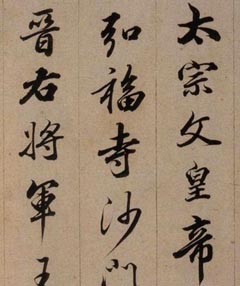 太宗文皇帝
弘福寺沙門
晉右將軍王